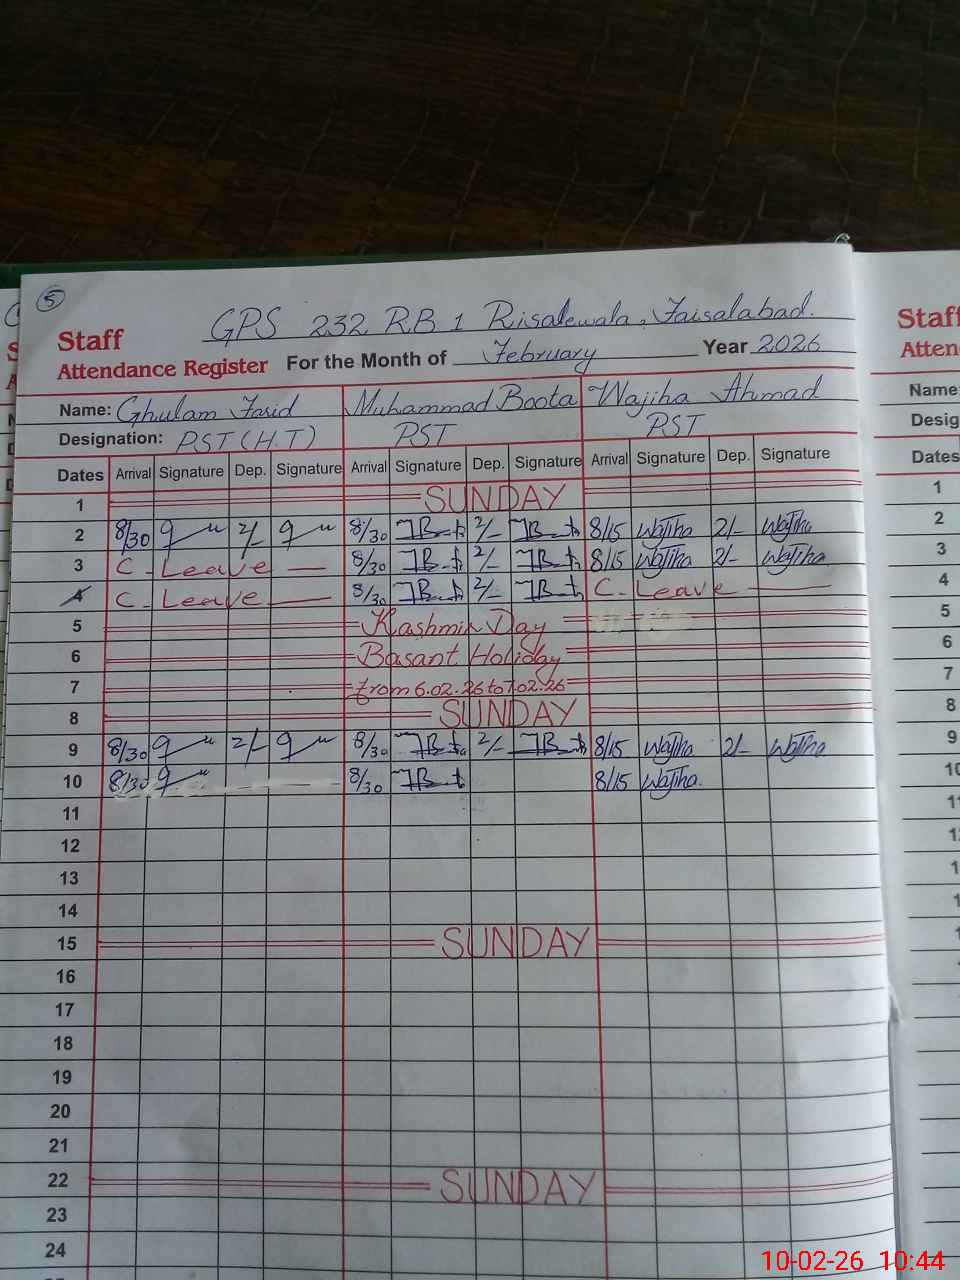 5
GPS 232 R.B 1 Risalewala, Faisalabad.
Staff
Attendance Register For the Month of February Year 2026
Name: Ghulam Farid Muhammad Boota Wajiha Ahmad
Designation: PST (H.T) PST PST
Dates Arrival Signature Dep. Signature Arrival Signature Dep. Signature Arrival Signature Dep. Signature
1 SUNDAY
2 8/30 2/- 8/30 2/- 8/15 Wajiha 2/- Wajiha
3 C - Leave — 8/30 2/- 8/15 Wajiha 2/- Wajiha
4 C - Leave — 8/30 2/- C - Leave —
5 Kashmir Day
6 Basant Holiday
7 from 6.02.26 to 7.02.26
8 SUNDAY
9 8/30 2/- 8/30 2/- 8/15 Wajiha 2/- Wajiha
10 8/30 8/30 8/15 Wajiha.
11
12
13
14
15 SUNDAY
16
17
18
19
20
21
22 SUNDAY
23
24
Staff
Atten
Name:
Desig
Dates
1
2
3
4
5
6
7
8
9
10
10-02-26 10:44